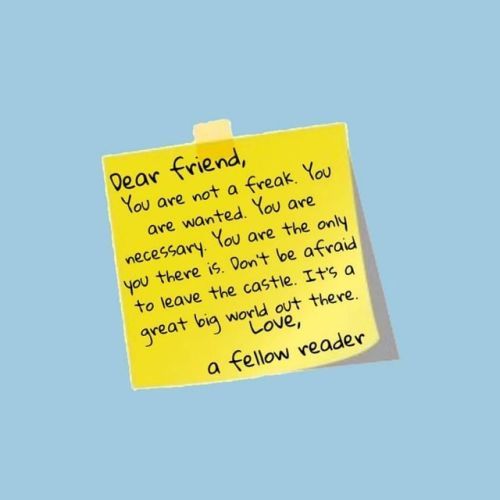 Dear friend,
You are not a freak. You
are wanted. You are
necessary. You are the only
you there is. Don't be afraid
to leave the castle. It's a
great big world out there.
Love,
a fellow reader